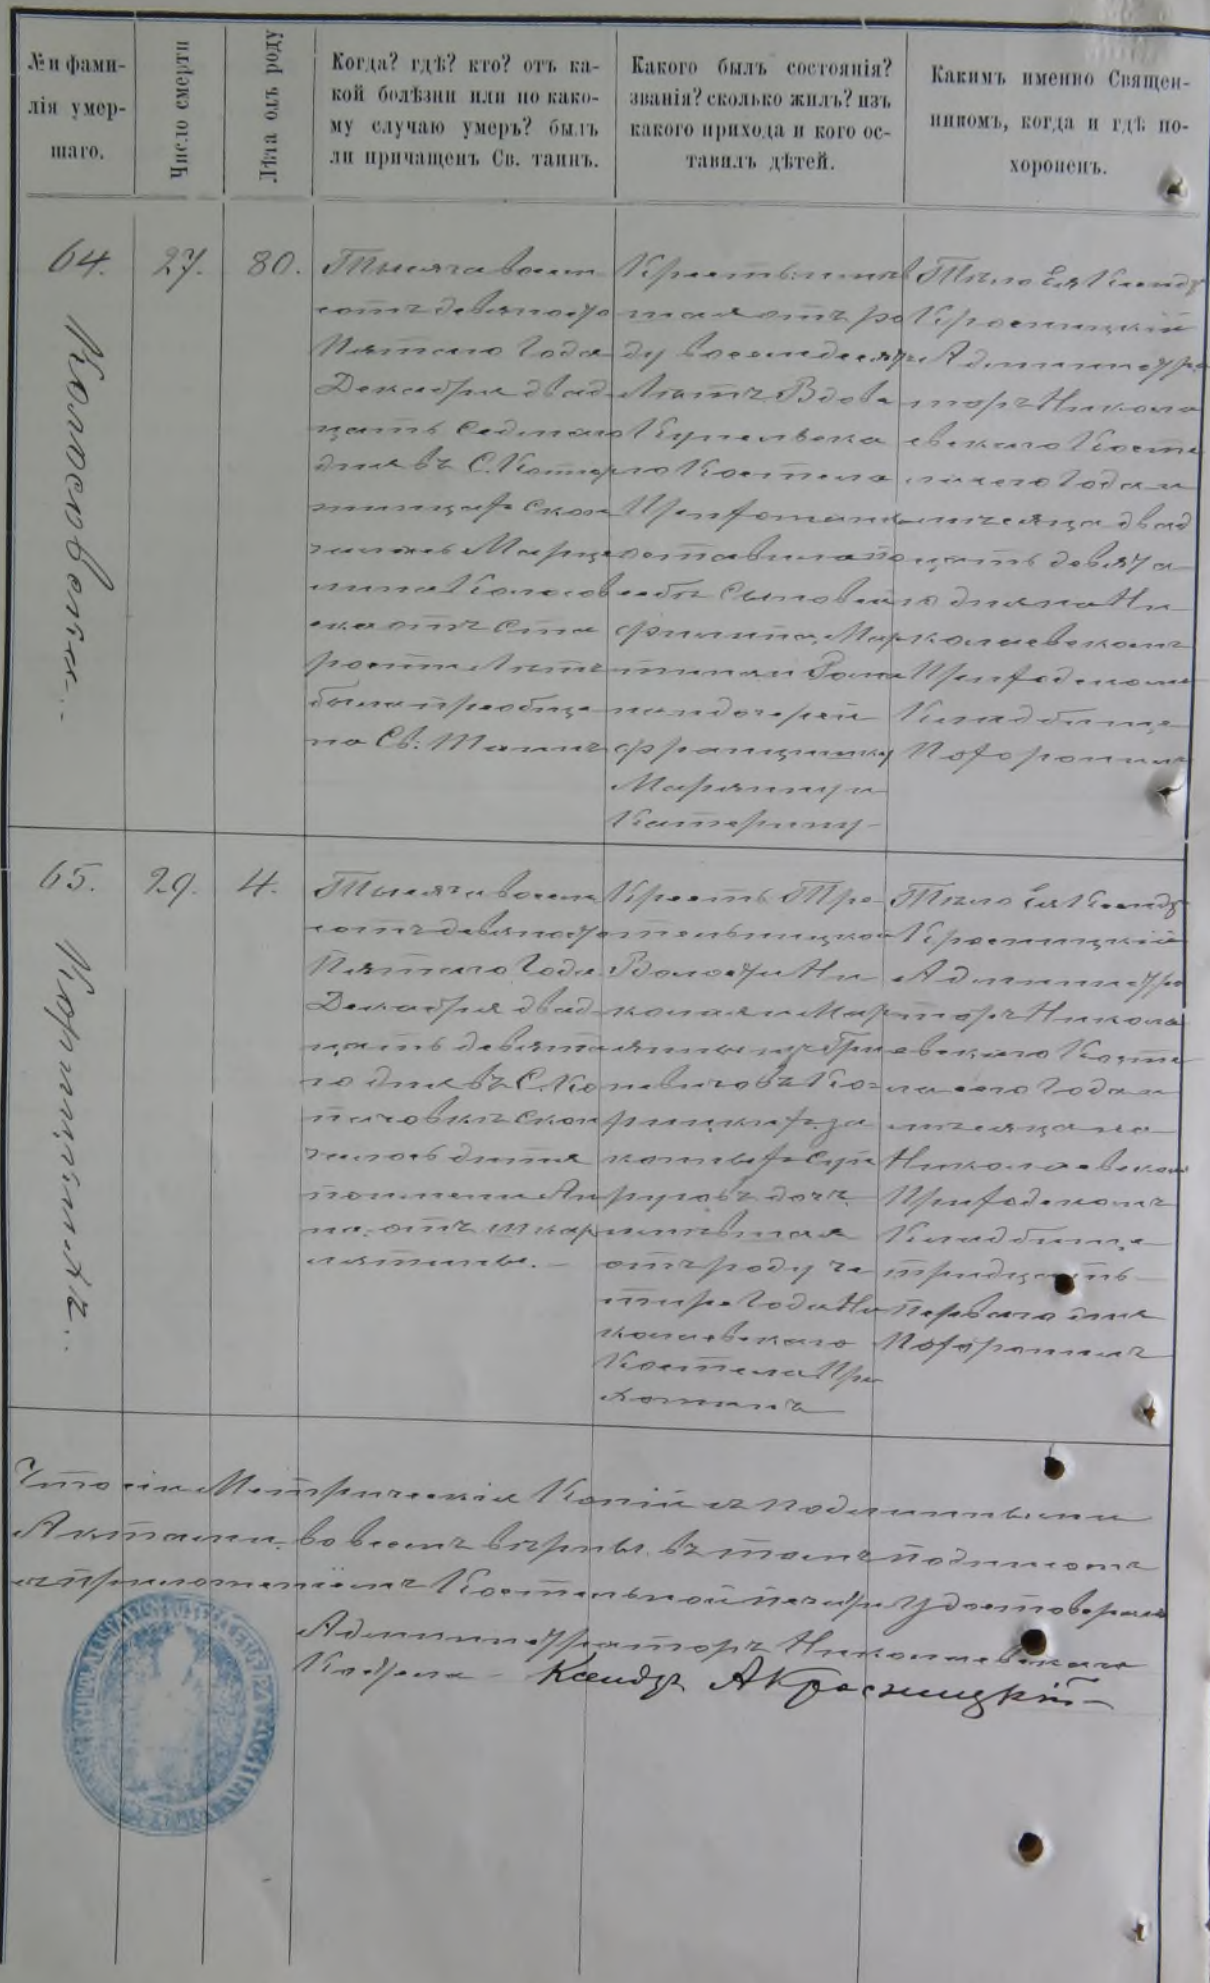 № и фами-
лія умер-
шаго.
Число смерти
Лѣта отъ роду
Когда? гдѣ? кто? отъ ка-
кой болѣзни или по како-
му случаю умеръ? былъ
ли причащенъ Св. таинъ.
Какого былъ состоянія?
званія? сколько жилъ? изъ
какого прихода и кого ос-
тавилъ дѣтей.
Какимъ именно Священ-
никомъ, когда и гдѣ по-
хороненъ.
64.
27.
80.
Тысяча восем
сотъ девяносто
Пятаго Года
Декабря двад
цать седьмаго
дня въ С.
скон
чалась Марце
лина Колосов
ска отъ ста
рости Лѣтъ
была приобще
на Св: Таинъ
Крестьянка
отъ ро
ду восемдесятъ
Лѣтъ Вдова
го Костела
оставила по
себѣ Сыновей
Филипа, Мар
тина и Рома
на дочерей
Францишку
Марянну и
Катерину
Тѣло Ея Ксендзъ
Кросницкій
Администра
торъ Никола
евскаго Косте
ла сего Года и
мѣсяца двад
цать девята
го дня на Ни
колаевскомъ
Приходскомъ
Кладбище
Похоронилъ
65.
29.
4.
Тысяча восем
сотъ девяносто
Пятаго Года
Декабря двад
цать девята
го дня въ С. Ко
скон
чалось дитя
по имени Ан
на отъ шкар
лятины.
Крестъ Тро
Волости Ни
колая и Мар
законныхъ Суп
руговъ дочь
отъ роду че
тире Года Ни
колаевскаго
Костела При
хожанъ
Тѣло Ея Ксендзъ
Кросницкій
Администра
торъ Никола
евскаго Косте
ла сего Года и
мѣсяца на
Николаевском
Приходскомъ
Кладбище
тридцать
Перваго дня
Похоронилъ
Что сіи Метрическія Копіи съ подлинными
Актами во всемъ вѣрны въ томъ подписомъ
съ приложеніемъ Костельной печати удостоверяю
Администраторъ Николаевскаго
Костела Ксендзъ А Кросницкій